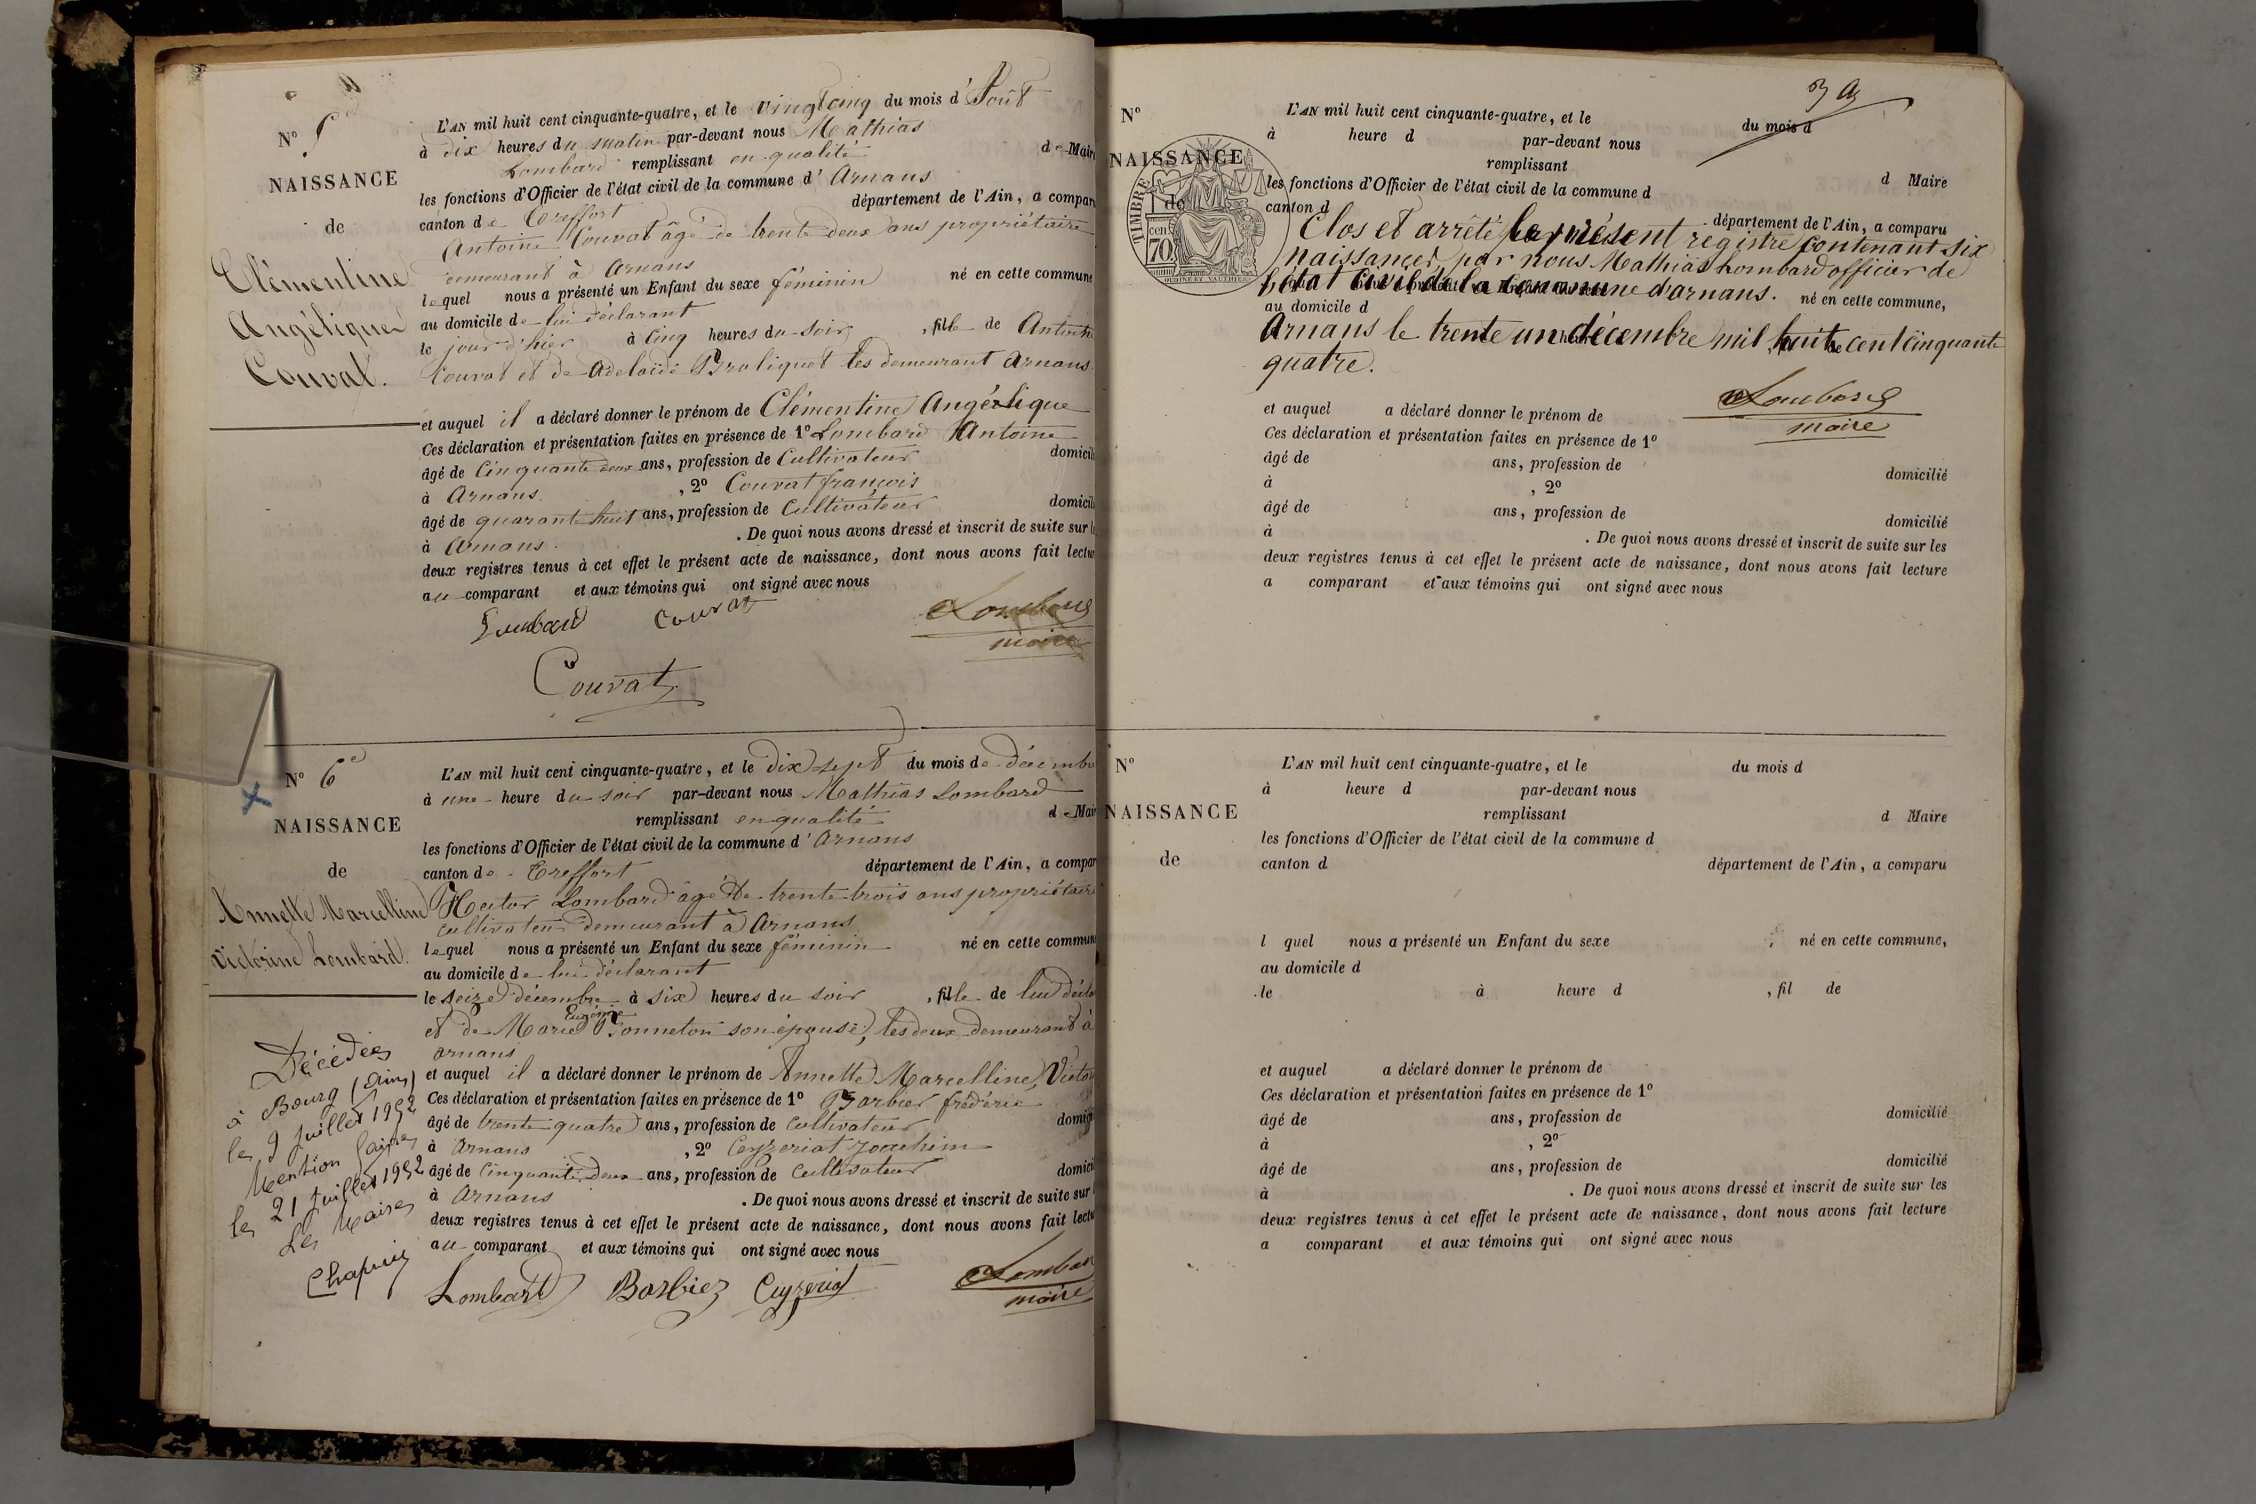 N° 5e
NAISSANCE
de
Clémentine
Angélique
Couvat.
L'AN mil huit cent cinquante-quatre, et le vingt cinq du mois d'Août
à dix heures du matin par-devant nous Mathias
Lombard remplissant en qualité de Maire
les fonctions d'Officier de l'état civil de la commune d'Arnans
canton de Treffort département de l'Ain, a compar
Antoine Couvat âgé de trente deux ans propriétaire
demeurant à Arnans
lequel nous a présenté un Enfant du sexe féminin né en cette commune
au domicile de lui déclarant
le jour d'hier à cinq heures du soir, fille de Antoine
Couvat et de Adelaïde Broliquet les demeurant Arnans.
et auquel il a déclaré donner le prénom de Clémentine Angélique
Ces déclaration et présentation faites en présence de 1° Lombard Antoine
âgé de cinquante deux ans, profession de Cultivateur domicili
à Arnans. , 2° Couvat françois
âgé de quarante huit ans, profession de Cultivateur domicili
à Arnans. . De quoi nous avons dressé et inscrit de suite sur l
deux registres tenus à cet effet le présent acte de naissance, dont nous avons fait lectu
au comparant et aux témoins qui ont signé avec nous
Lombard Couvat Lombard
maire
Couvat
N° 6e
NAISSANCE
de
Annette Marcelline
Victorine Lombard.
L'AN mil huit cent cinquante-quatre, et le dix sept du mois de décembre
à une heure du soir par-devant nous Mathias Lombard
remplissant en qualité de Mair
les fonctions d'Officier de l'état civil de la commune d'Arnans
canton de Treffort département de l'Ain, a compar
Hector Lombard âgé de trente trois ans propriétaire
cultivateur demeurant à Arnans
lequel nous a présenté un Enfant du sexe féminin né en cette commun
au domicile de lui déclarant
le seize décembre à six heures du soir, fille de lui décla
Eugénie
et de Marie Bonneton son épouse, les deux demeurant à
arnans
et auquel il a déclaré donner le prénom de Annette Marcelline, Victor
Ces déclaration et présentation faites en présence de 1° Barbier frédéric
âgé de trente quatre ans, profession de cultivateur domici
à Arnans , 2° Ceyzeriat Joachim
âgé de cinquante deux ans, profession de cultivateur domici
à Arnans . De quoi nous avons dressé et inscrit de suite sur
deux registres tenus à cet effet le présent acte de naissance, dont nous avons fait lectu
au comparant et aux témoins qui ont signé avec nous
Lombard Barbier Ceyzeriat Lombar
maire
Décédée
à Bourg (Ain)
le 9 juillet 1952
Mention faite
le 21 juillet 1952
Le Maire
Chapuis
N°
NAISSANCE
de
TIMBRE
70 cen
L'AN mil huit cent cinquante-quatre, et le du mois d
à heure d par-devant nous
remplissant d Maire
les fonctions d'Officier de l'état civil de la commune d
canton d département de l'Ain, a comparu
Clos et arrêté le présent registre contenant six
naissances, par nous Mathias Lombard officier de
l'état civil de la commune d'arnans. né en cette commune,
au domicile d
Arnans le trente un décembre mil huit cent cinquante
quatre.
Lombard
maire
et auquel a déclaré donner le prénom de
Ces déclaration et présentation faites en présence de 1°
âgé de ans, profession de domicilié
à , 2°
âgé de ans, profession de domicilié
à . De quoi nous avons dressé et inscrit de suite sur les
deux registres tenus à cet effet le présent acte de naissance, dont nous avons fait lecture
a comparant et aux témoins qui ont signé avec nous
N°
NAISSANCE
de
L'AN mil huit cent cinquante-quatre, et le du mois d
à heure d par-devant nous
remplissant d Maire
les fonctions d'Officier de l'état civil de la commune d
canton d département de l'Ain, a comparu
l quel nous a présenté un Enfant du sexe , né en cette commune,
au domicile d
le à heure d , fil de
et auquel a déclaré donner le prénom de
Ces déclaration et présentation faites en présence de 1°
âgé de ans, profession de domicilié
à , 2°
âgé de ans, profession de domicilié
à . De quoi nous avons dressé et inscrit de suite sur les
deux registres tenus à cet effet le présent acte de naissance, dont nous avons fait lecture
a comparant et aux témoins qui ont signé avec nous